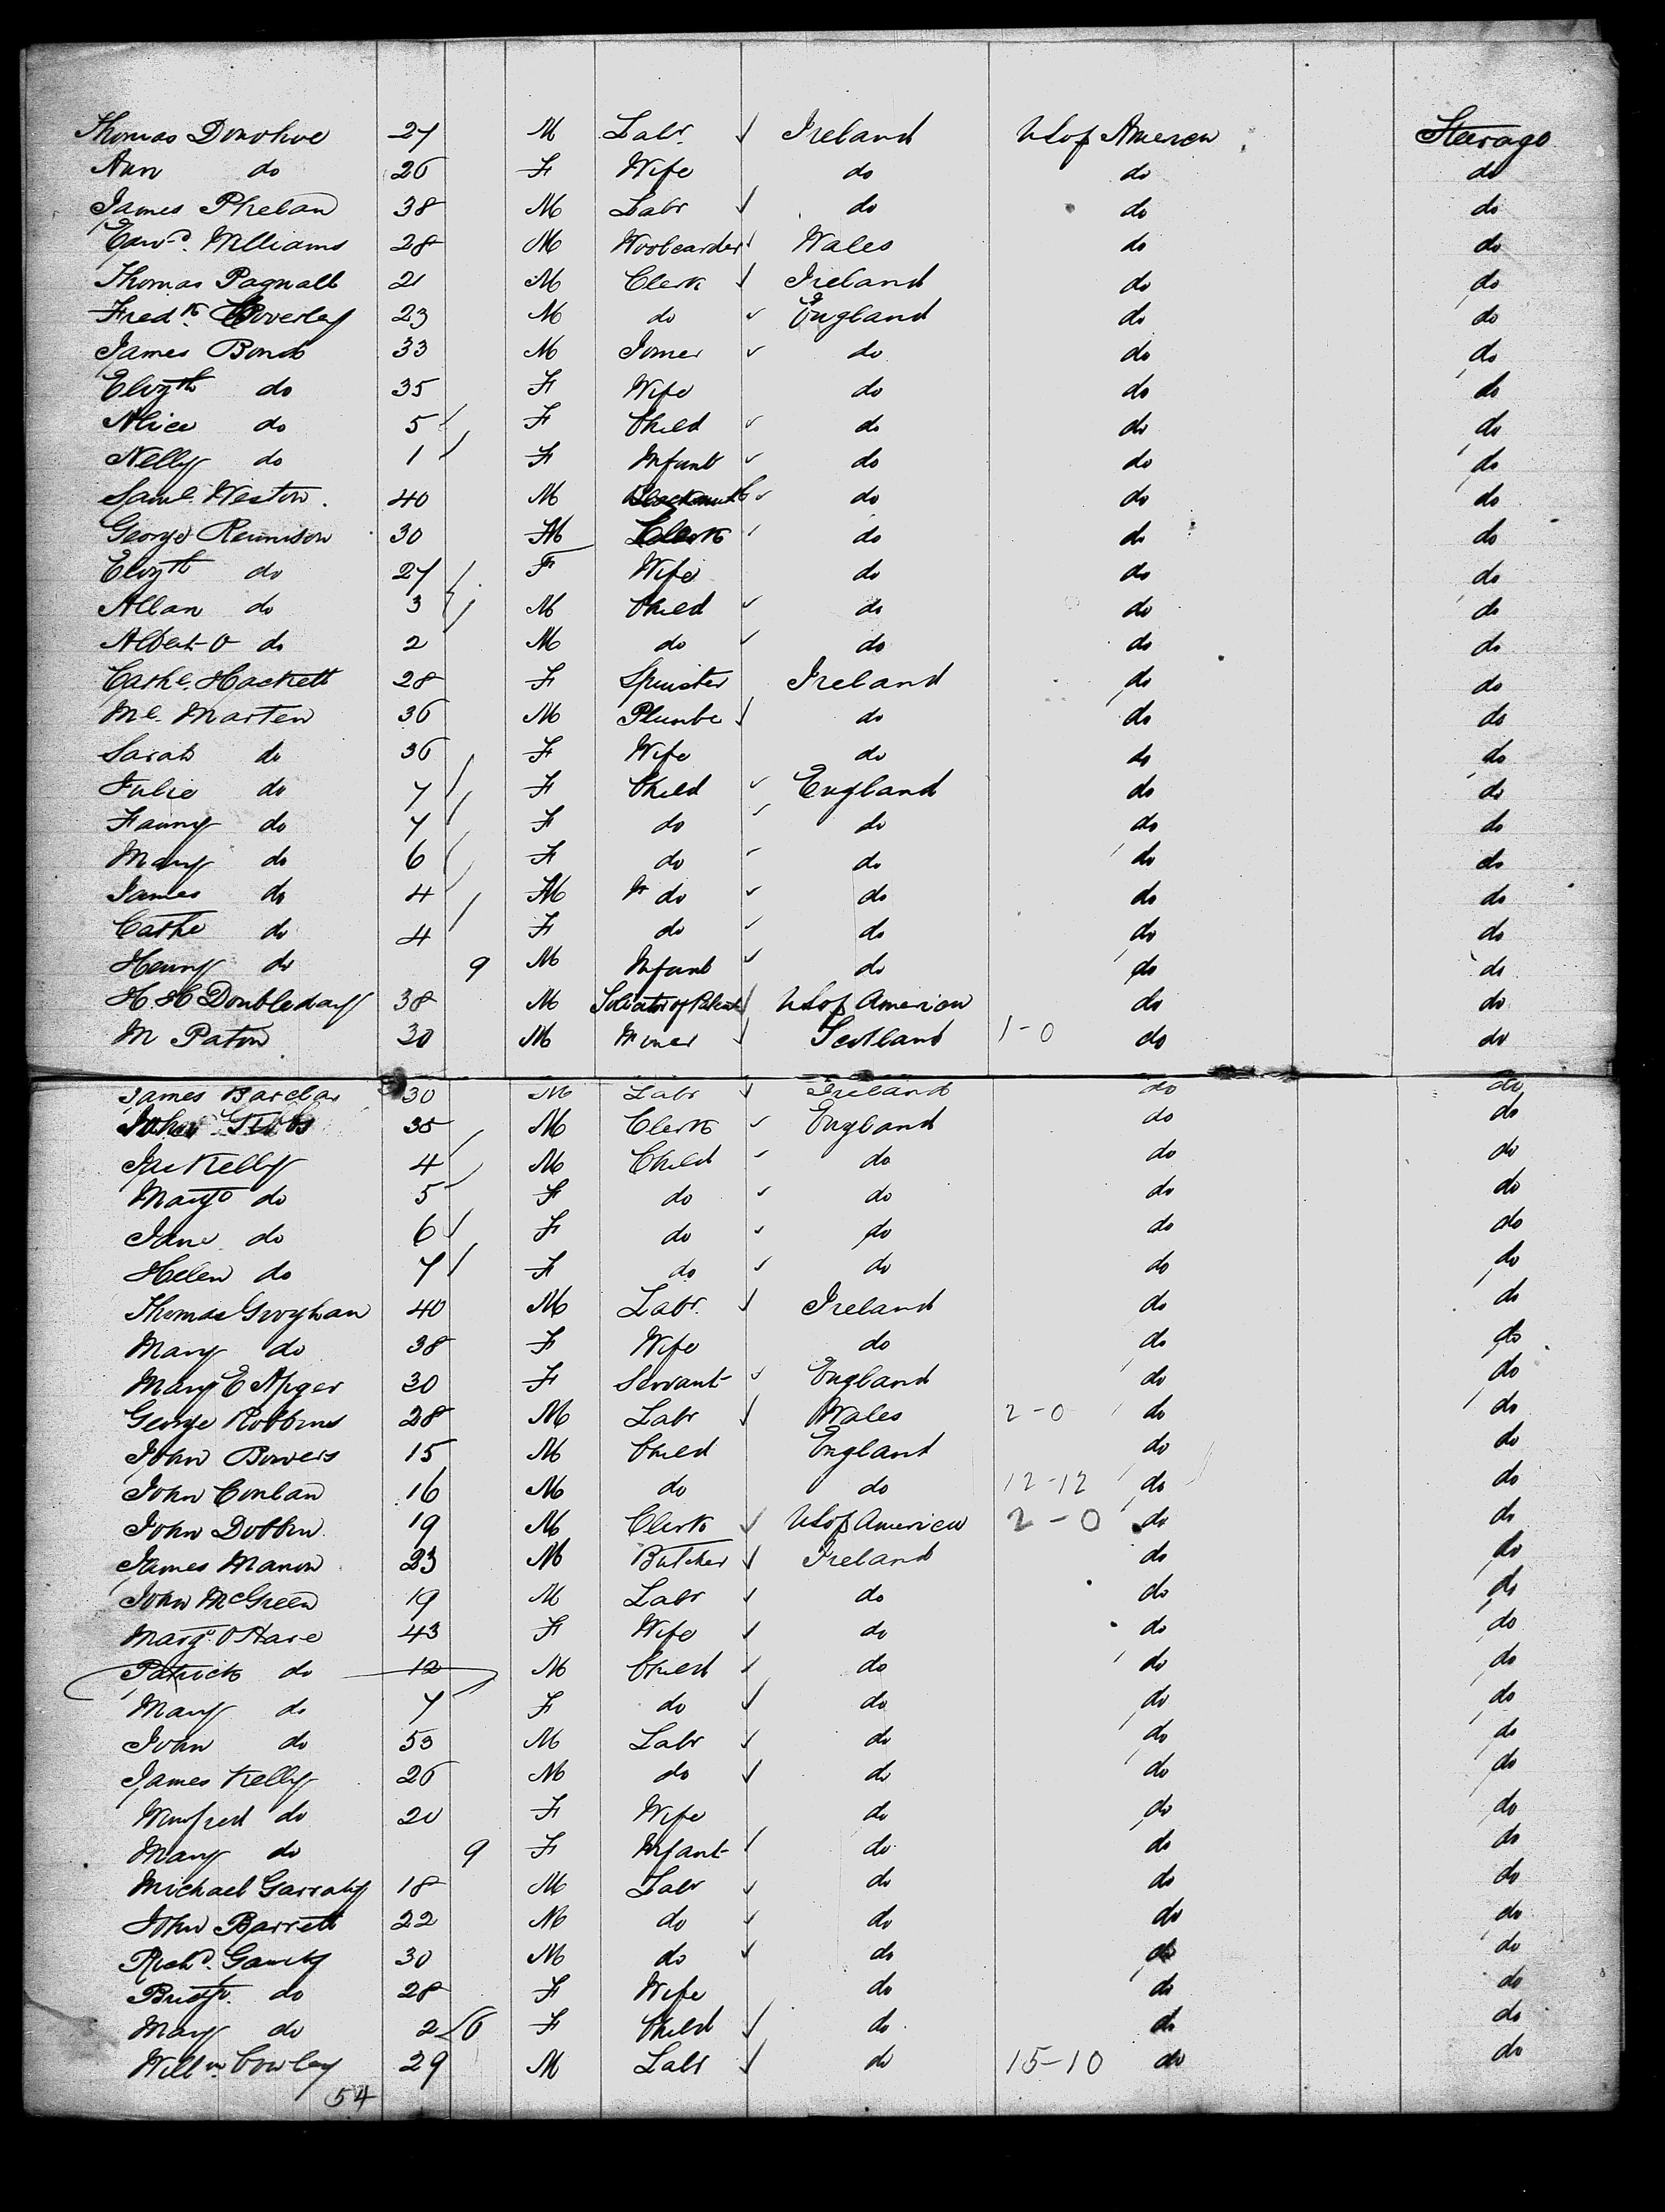 Thomas Donohoe 27 M Labr. Ireland U S of America Steerage
Ann do 26 F Wife do do do
James Phelan 38 M Labr do do do
Edwd. Williams 28 M Woolcarder Wales do do
Thomas Pagnall 21 M Clerk Ireland do do
Fredk. Coverley 23 M do England do do
James Bond 33 M Joiner do do do
Elizth do 35 F Wife do do do
Alice do 5 F Child do do do
Nelly do 1 F Infant do do do
Saml. Weston. 40 M Blacksmith do do do
George Rennison 30 M Clerk do do do
Elizth do 27 F Wife do do do
Allan do 3 M Child do do do
Albert O do 2 M do do do do
Cathe. Hackett 28 F Spinster Ireland do do
Ml. Marten 36 M Plumbe do do do
Sarah do 36 F Wife do do do
Julie do 7 F Child England do do
Fanny do 7 F do do do do
Mary do 6 F do do do do
James do 4 M do do do do
Cathe do 4 F do do do do
Henry do 9 M Infant do do do
H. H Doubleday 38 M Solicitor of Patents U S of America do do
M Paton 30 M Miner Scotland 1-0 do do
James Barclay 30 M Labr Ireland do do
John Gibbs 35 M Clerk England do do
Kelly 4 M Child do do do
Margt do 5 F do do do do
Jane do 6 F do do do do
Helen do 7 F do do do do
Thomas Groghan 40 M Labr. Ireland do do
Mary do 38 F Wife do do do
Mary E Apger 30 F Servant England do do
George Robbins 28 M Labr Wales 2-0 do do
John Bowers 15 M Child England do do
John Conlan 16 M do do 12-12 do do
John Dobbin. 19 M Clerk U S of America 2-0 do do
James Manon 23 M Butcher Ireland do do
John McGreen 19 M Labr do do do
Margt. O Hare 43 F Wife do do do
Patrick do 12 M Child do do do
Mary do 7 F do do do do
John do 53 M Labr do do do
James Kelly 26 M do do do do
Winfred do 20 F Wife do do do
Mary do 9 F Infant do do do
Michael Garraty 18 M Labr do do do
John Barrett 22 M do do do do
Richd. 30 M do do do do
Bridgt. do 28 F Wife do do do
Mary do 2 6 F Child do do do
Willm. Cowley 29 M Labr do 15-10 do do
54